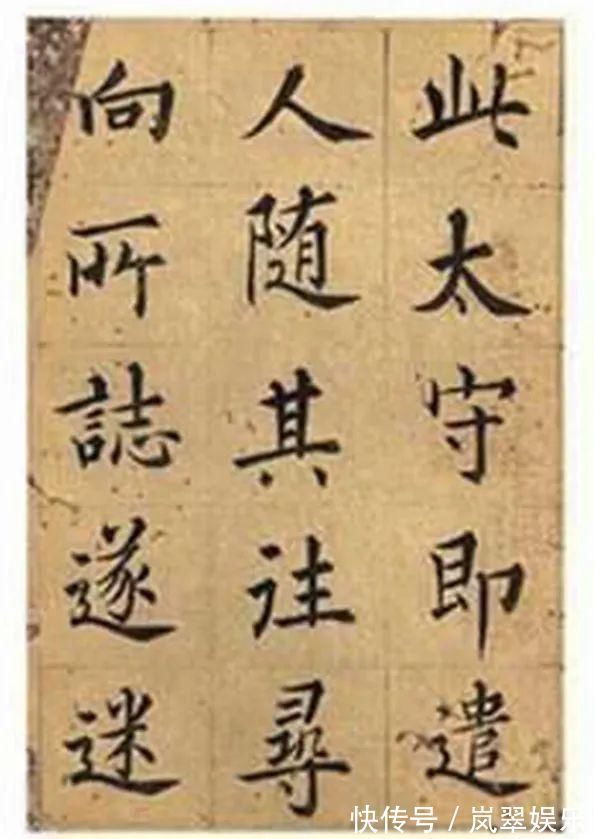 此太守即遣
人随其往尋
向所誌遂迷
快传号/岚翠娱乐